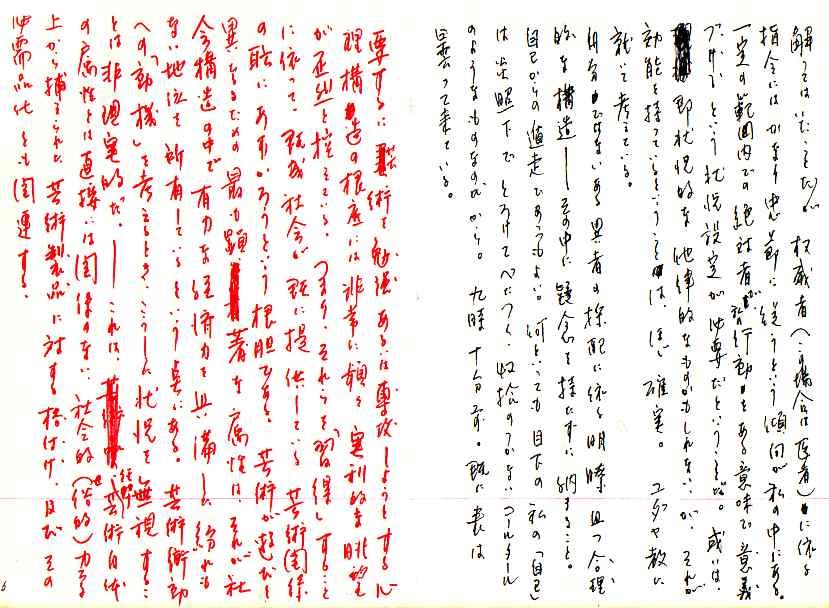 解ってはいたことだが 権威者（この場合は医者）に依る
指令にはかなり忠節に従うという傾向が私の中にある。
一定の範囲内での絶対者が私の行動をある意味で意義
づけるという状況設定が必要だということだ。或いは、
即状況的な他律的なものかもしれない。が、それが
効能を持っているということは、ほぼ確実。 ユダヤ教に
就いて考えている。
自分ではないある異者の採配に依る明晰且つ合理
的な構造——その中に疑念を持たずに納まること。
自己からの遁走であってもよい。何といっても目下の私の「自己」
は炎照下でとろけてべたつく、収拾のつかないコールタール
のようなものなのだから。 九時十分前。既に表は
曇って来ている。
要するに芸術を勉強あるいは専攻しようとする心
裡構造の根底には非常に頻々実利的な眺望
が歪曲と控えている。 つまり、それらを「習得」すること
に依って、既成社会が既に提供している芸術関係
の職にありつかろうという根胆である。芸術が遊びと
異なるための最も顕著な属性は、それが社
会構造の中で有力な経済力を具備した紛れも
ない地位を所有しているという点にある。芸術衝動
への「動機」を考えるとき、こうした状況を無視するこ
とは非現実的だ。——これは、芸術自体
の属性とは直接には関係のない、社会的（俗的）力
上から捕えられた芸術製品に対する格付け、及びその
必需品化とも関連する。